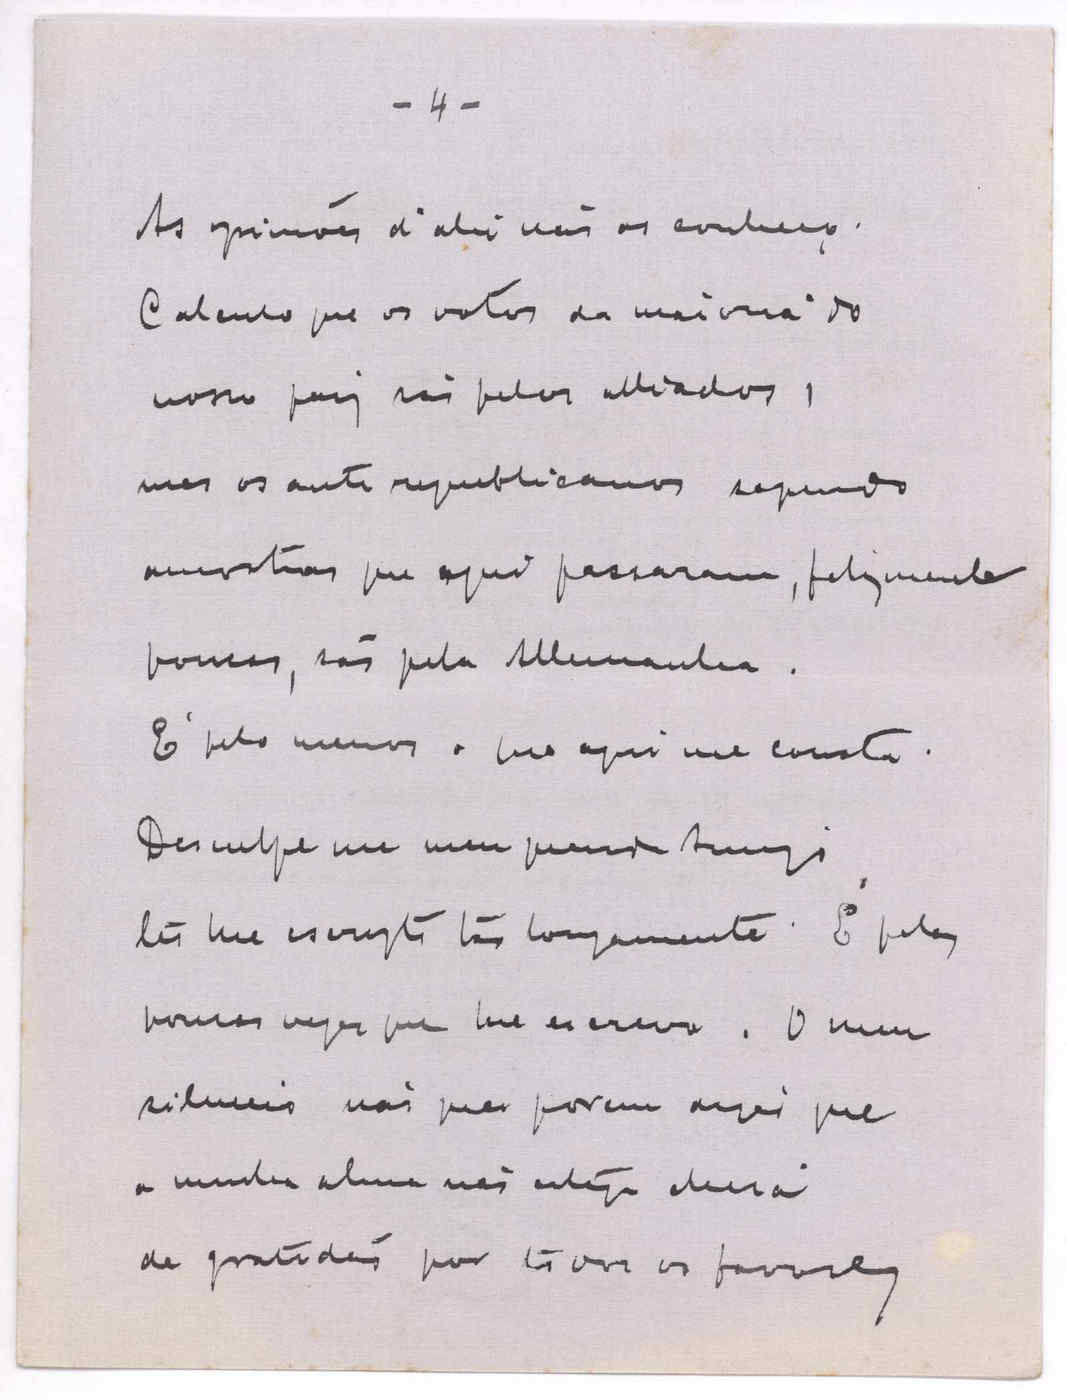 - 4 -
As opiniões d'ahi não as conheço.
Calculo que os votos da maioria do
nosso paiz são pelos alliados,
mas os anti republicanos segundo
amostras que aqui passaram, felizmente
poucas, são pela Allemanha.
É pelo menos o que aqui me consta.
Desculpe me meu grande Amigo
lhe escripto tão longamente. É pelas
poucas vezes que lhe escrevo. O meu
silencio não quer porem dizer que
a minha alma não esteja cheia
de gratidão por todos os favores